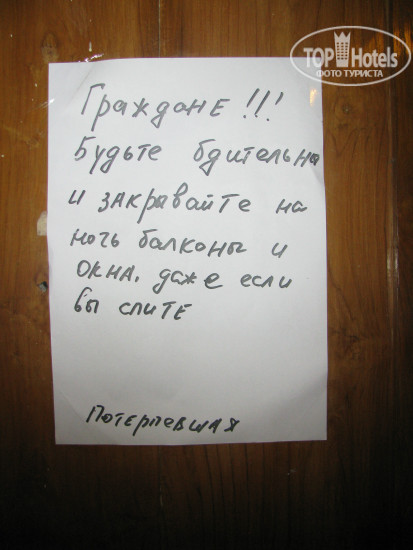 TOP Hotels
ФОТО ТУРИСТА
Граждане!!!
Будьте бдительна
и закравайте на
ночь балконы и
окна, даже если
вы спите
Потерпевшая